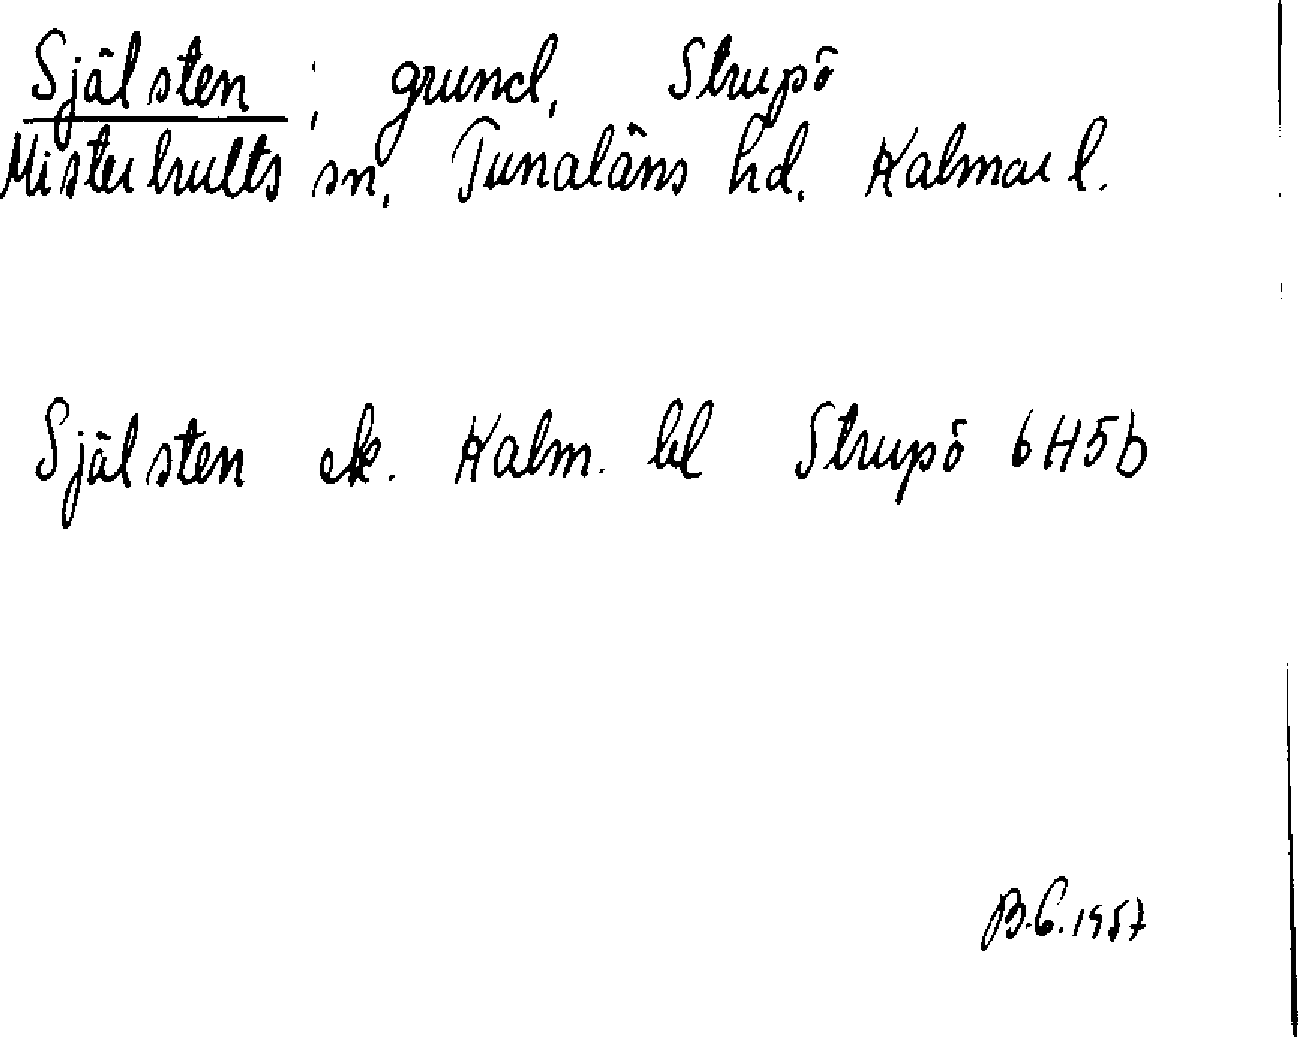 Själsten ; grund, Strupö
Misterhults sn, Tunaläns hd. Kalmar l.
Själsten ek. Kalm. bl Strupö 6H5b
B.C. 1957